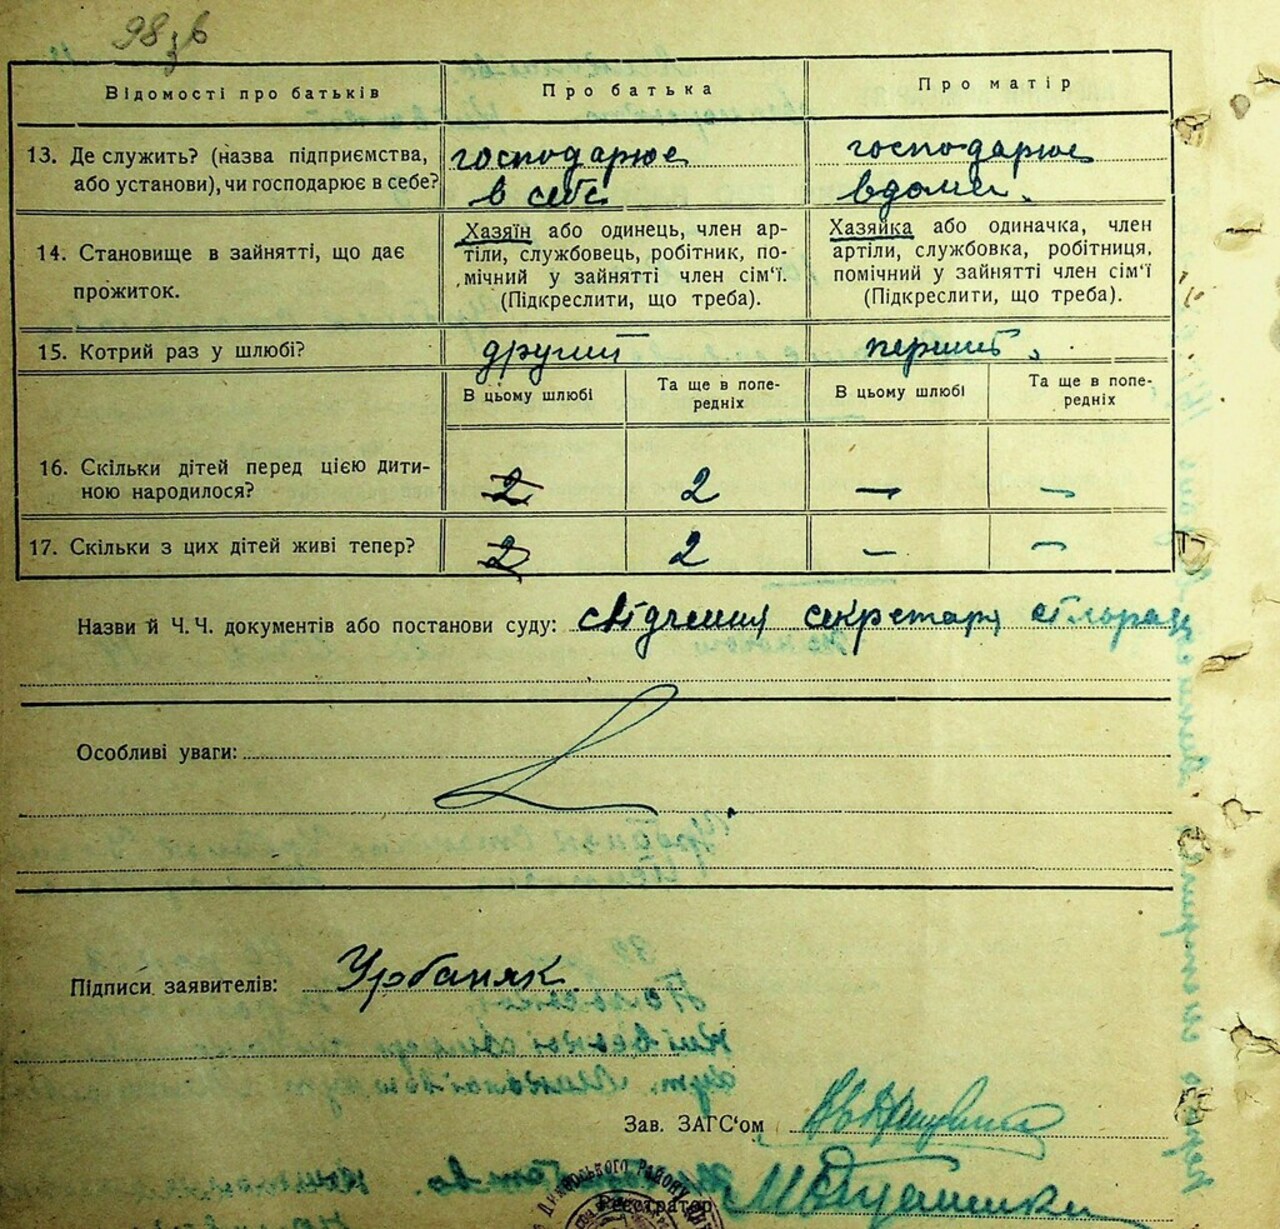 98зв
Відомості про батьків
Про батька
Про матір
13. Де служить? (назва підприємства,
або установи), чи господарює в себе?
господарює
в себе
господарює
вдома.
14. Становище в зайнятті, що дає
прожиток.
Хазяїн або одинець, член ар-
тіли, службовець, робітник, по-
мічний у зайнятті член сім'ї.
(Підкреслити, що треба).
Хазяйка або одиначка, член
артіли, службовка, робітниця,
помічний у зайнятті член сім'ї
(Підкреслити, що треба).
15. Котрий раз у шлюбі?
другий
перший
В цьому шлюбі
Та ще в попе-
редніх
В цьому шлюбі
Та ще в попе-
редніх
16. Скільки дітей перед цією дити-
ною народилося?
2 2 — —
17. Скільки з цих дітей живі тепер?
2 2 — —
Назви й Ч.Ч. документів або постанови суду: свідчення секретаря сільради
Особливі уваги:
Підписи заявителів: Урбаняк
Зав. ЗАГС'ом
Реєстратор